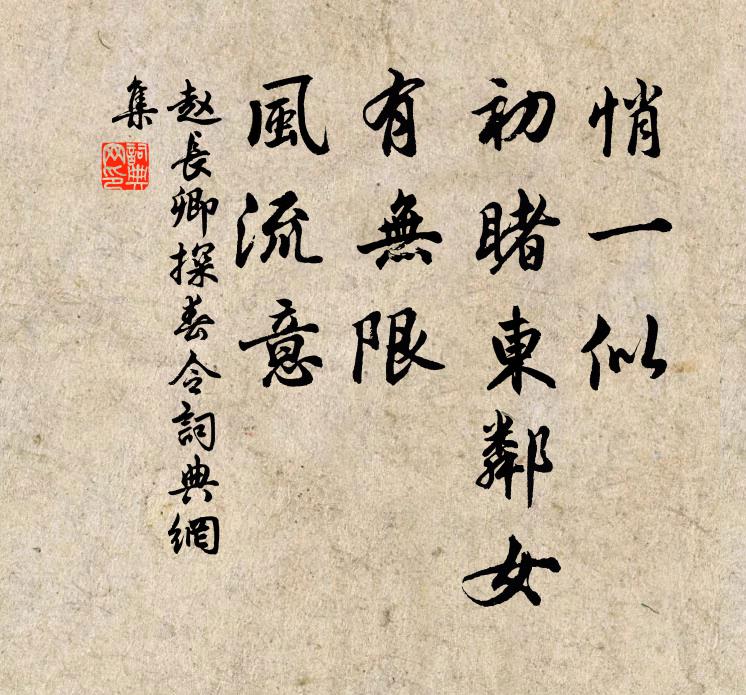 悄一似
初睹東鄰女
有無限
風流意
赵長卿探春令詞典網
集
詞典
网印